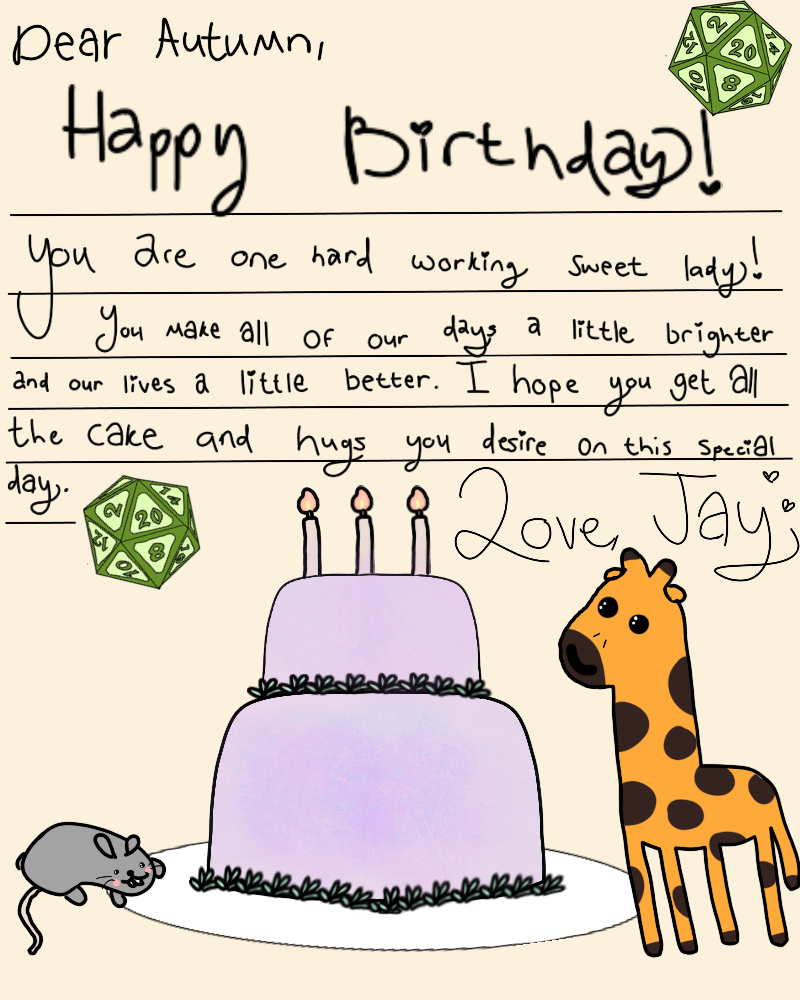 Dear Autumn,
Happy Birthday!
You are one hard working sweet lady!
You make all of our days a little brighter
and our lives a little better. I hope you get all
the cake and hugs you desire on this special
day.
Love, Jay
2
20
14
12
8
10
16
2
20
14
12
8
10